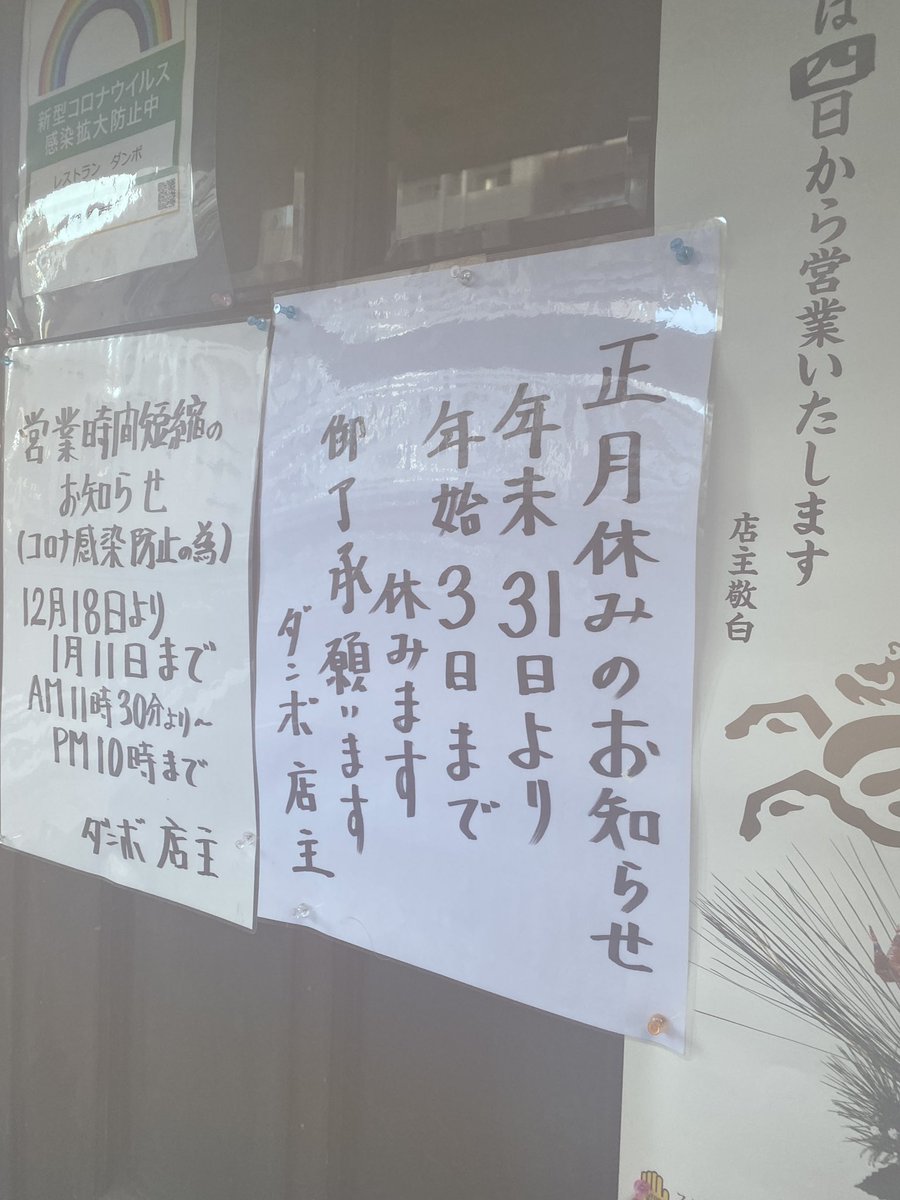 新型コロナウイルス
感染拡大防止中
レストラン ダンボ
営業時間短縮の
お知らせ
(コロナ感染防止の為)
12月18日より
1月11日まで
AM11時30分より~
PM10時まで
ダンボ 店主
正月休みのお知らせ
年末 31日より
年始 3日まで
休みます
御了承願います
ダンボ 店主
は四日から営業いたします
店主敬白